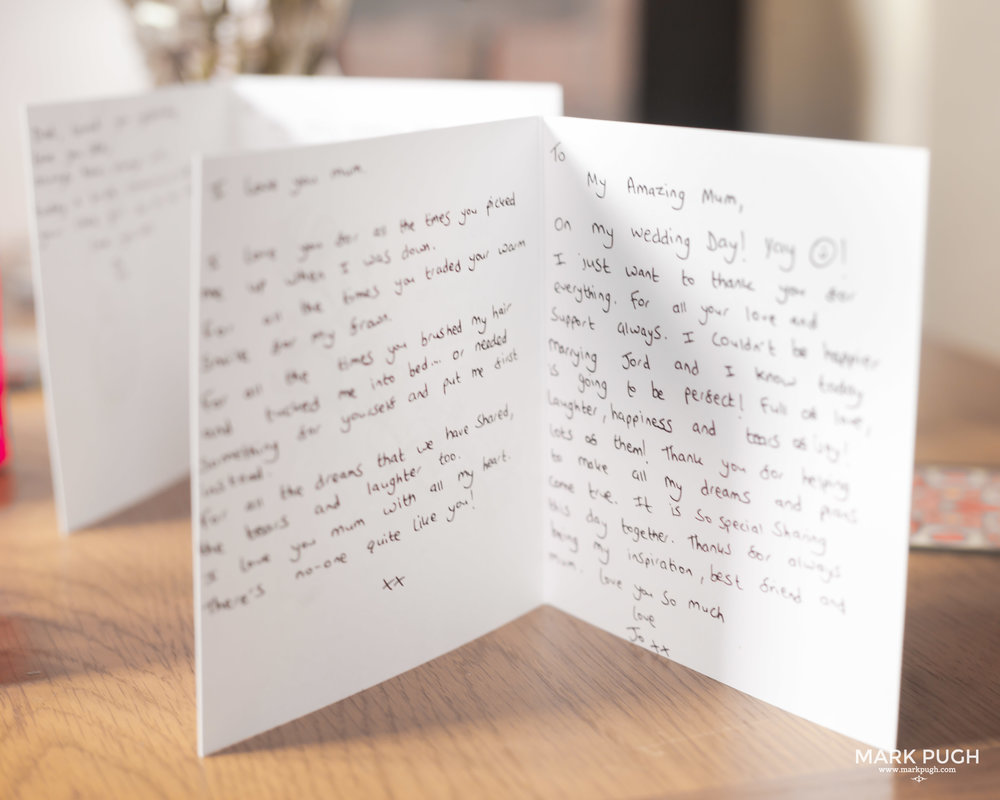 I love you mum.
I love you for all the times you picked
me up when I was down.
For all the times you traded your warm
smile for my frown.
For all the times you brushed my hair
and tucked me into bed.... or needed
something for yourself and put me first
instead.
For all the dreams that we have shared,
the tears and laughter too.
I love you mum with all my heart.
There's no-one quite like you!
xx
To
My Amazing Mum,
On my wedding Day! Yay !
I just want to thank you for
everything. For all your love and
Support always. I couldn't be happier
marrying Jord and I know today
is going to be perfect! Full of love,
laughter, happiness and tears of joy!
lots of them! Thank you for helping
to make all my dreams and plans
come true. It is so special sharing
this day together. Thanks for always
being my inspiration, best friend and
mum. Love you so much
love
Jo xx
MARK PUGH
www.markpugh.com